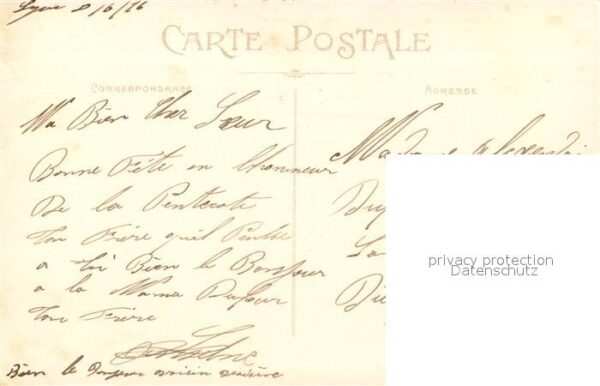 Lyon 8/6/16
CARTE POSTALE
CORRESPONDANCE
ADRESSE
Ma Bien Cher Sœur
Bonne Fête en l'honneur
De la Pentecote
ton Frère qui
a toi Bien le Bonjour
a la Mama Dufour
ton Frère
Bien le Bonjour
Madame
Du
La
Di
privacy protection
Datenschutz